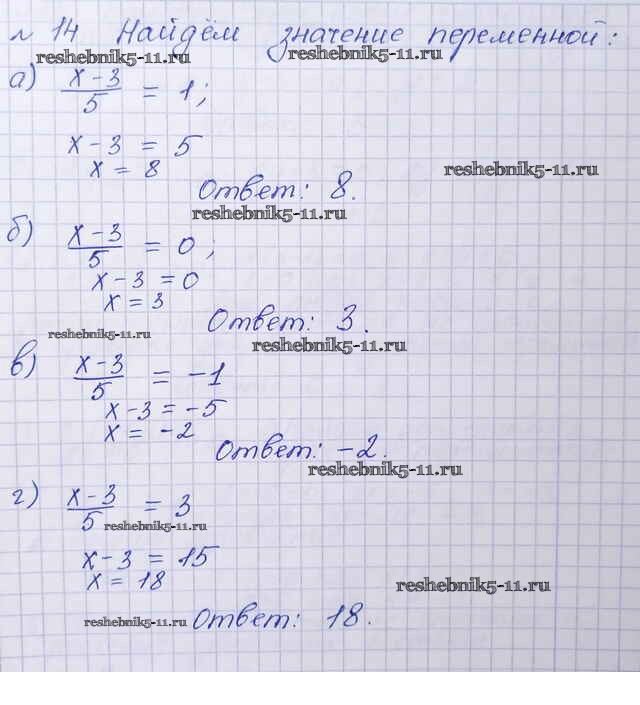 № 14 Найдём значение переменной:
reshebnik5-11.ru reshebnik5-11.ru
а) x-3/5 = 1;
x-3 = 5
x = 8
reshebnik5-11.ru
Ответ: 8.
reshebnik5-11.ru
б) x-3/5 = 0;
x-3 = 0
x = 3
Ответ: 3.
reshebnik5-11.ru
reshebnik5-11.ru
в) x-3/5 = -1
x-3 = -5
x = -2
Ответ: -2.
reshebnik5-11.ru
г) x-3/5 = 3
reshebnik5-11.ru
x-3 = 15
x = 18
reshebnik5-11.ru
reshebnik5-11.ru
Ответ: 18.